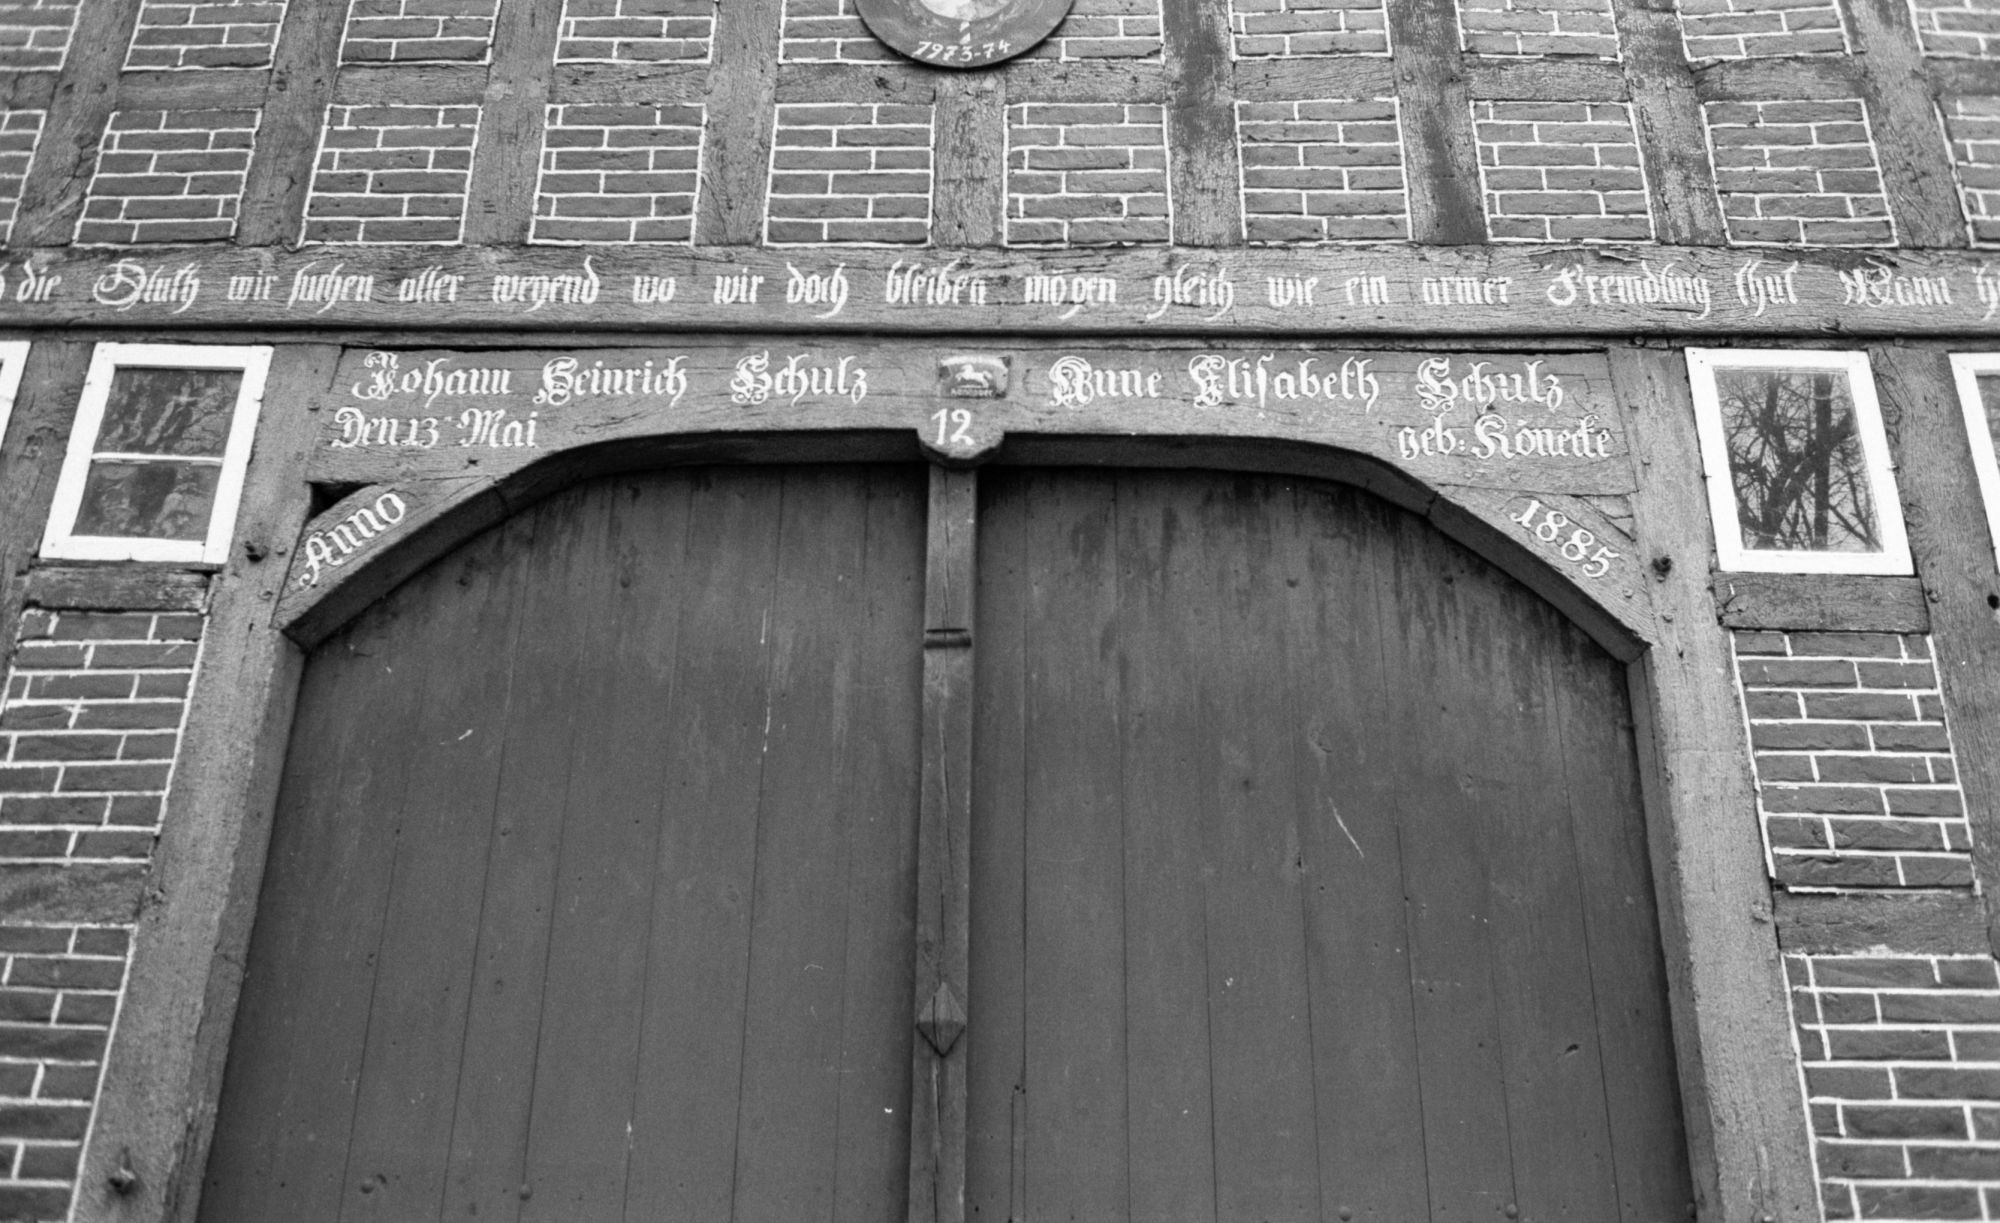 1973-74
die Gluth wir suchen aller wegend wo wir doch bleiben mögen gleich wie ein armer Fremdling thut Wann
Johann Heinrich Schulz
Den 13 Mai
12
Anne Elisabeth Schulz
geb: Könecke
Anno
1885